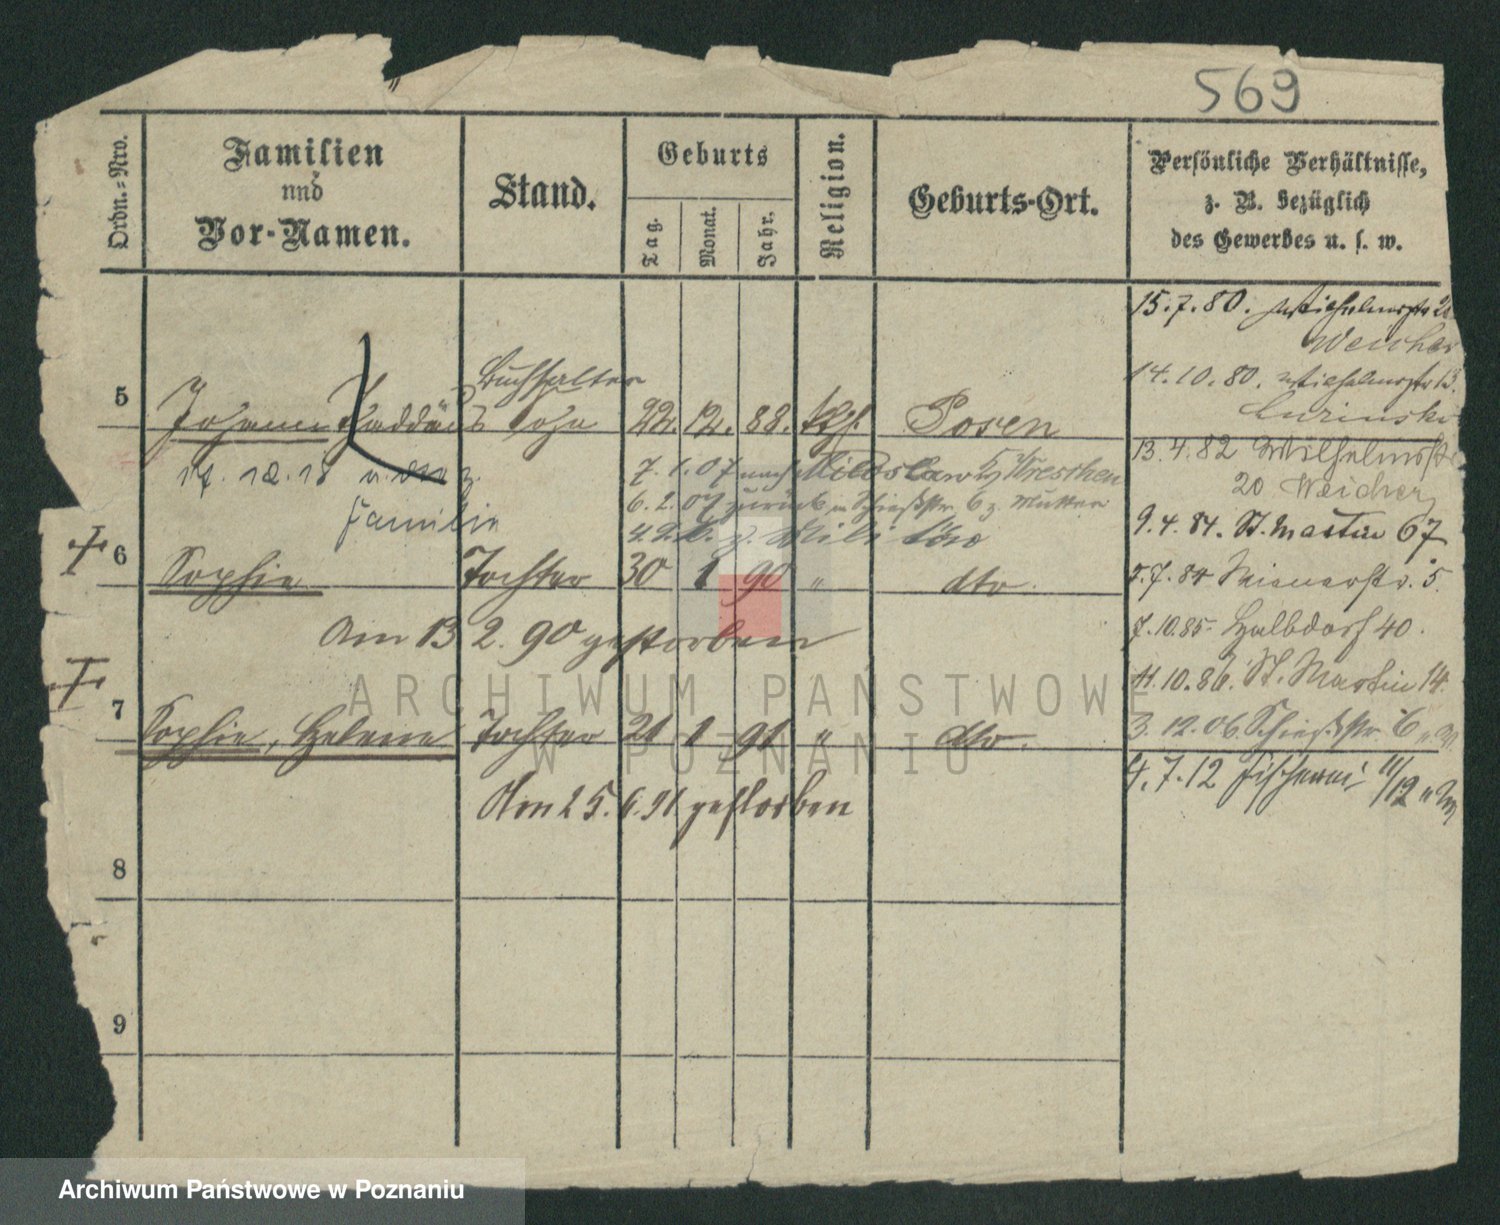 569
Ordn.=Nro.
Familien
und
Vor-Namen.
Stand.
Geburts
Tag.
Monat.
Jahr.
Religion.
Geburts-Ort.
Persönliche Verhältnisse,
z. B. bezüglich
des Gewerbes u. s. w.
5
Johann Thaddäus
Buchhalter
Sohn
22. 12. 88. kth.
Posen
17. 12. 18
Familie
7. 1. 07 nach Miloslaw Kr. Wreschen
6. 2. 07 zurück in Schießstr. 6 z. Mutter
z. Militär
6
Sophie
Tochter
30 1 90 "
dto.
Am 13 2. 90 gestorben
7
Sophie, Helene
Tochter
21 1 91 "
dto.
Am 25. 6. 91 gestorben
8
9
15. 7. 80. Wilhelmstr
Weicher
14. 10. 80. Wilhelmstr 13.
13. 4. 82 Wilhelmstr
20 Weicher
9. 4. 84. St. Martin 67
7. 84 Wienerstr. 5.
7. 10. 85 Halbdorf 40.
11. 10. 86. St. Martin 14.
3. 12. 06. Schießstr. 6
4. 7. 12 Fischerei 11/12
ARCHIWUM PAŃSTWOWE
W POZNANIU
Archiwum Państwowe w Poznaniu